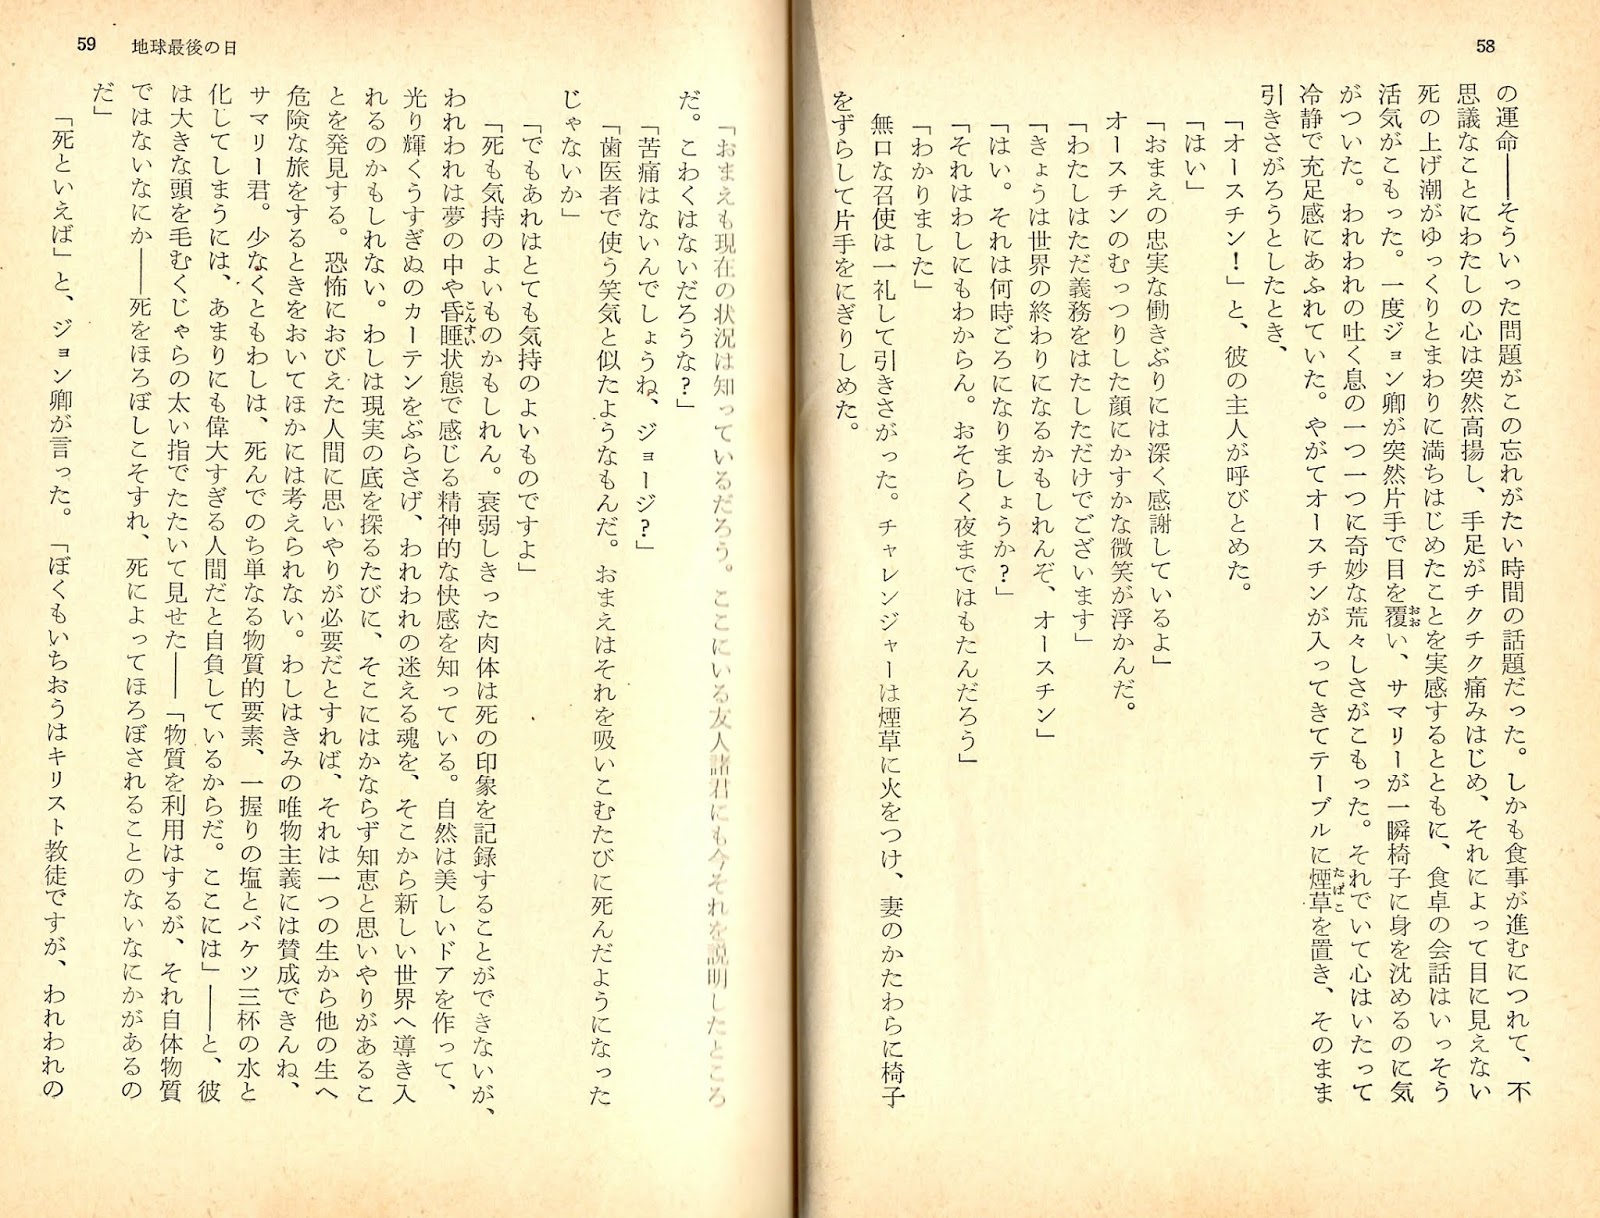 58
の運命――そういった問題がこの忘れがたい時間の話題だった。しかも食事が進むにつれて、不
思議なことにわたしの心は突然高揚し、手足がチクチク痛みはじめ、それによって目に見えない
死の上げ潮がゆっくりとまわりに満ちはじめたことを実感するとともに、食卓の会話はいっそう
活気がこもった。一度ジョン卿が突然片手で目を覆おおい、サマリーが一瞬椅子に身を沈めるのに気
がついた。われわれの吐く息の一つ一つに奇妙な荒々しさがこもった。それでいて心はいたって
冷静で充足感にあふれていた。やがてオースチンが入ってきてテーブルに煙草たばこを置き、そのまま
引きさがろうとしたとき、
「オースチン！」と、彼の主人が呼びとめた。
「はい」
「おまえの忠実な働きぶりには深く感謝しているよ」
オースチンのむっつりした顔にかすかな微笑が浮かんだ。
「わたしはただ義務をはたしただけでございます」
「きょうは世界の終わりになるかもしれんぞ、オースチン」
「はい。それは何時ごろになりましょうか？」
「それはわしにもわからん。おそらく夜まではもたんだろう」
「わかりました」
無口な召使は一礼して引きさがった。チャレンジャーは煙草に火をつけ、妻のかたわらに椅子
をずらして片手をにぎりしめた。
59 地球最後の日
「おまえも現在の状況は知っているだろう。ここにいる友人諸君にも今それを説明したところ
だ。こわくはないだろうな？」
「苦痛はないんでしょうね、ジョージ？」
「歯医者で使う笑気と似たようなもんだ。おまえはそれを吸いこむたびに死んだようになった
じゃないか」
「でもあれはとても気持のよいものですよ」
「死も気持のよいものかもしれん。衰弱しきった肉体は死の印象を記録することができないが、
われわれは夢の中や昏睡こんすい状態で感じる精神的な快感を知っている。自然は美しいドアを作って、
光り輝くうすぎぬのカーテンをぶらさげ、われわれの迷える魂を、そこから新しい世界へ導き入
れるのかもしれない。わしは現実の底を探るたびに、そこにはかならず知恵と思いやりがあるこ
とを発見する。恐怖におびえた人間に思いやりが必要だとすれば、それは一つの生から他の生へ
危険な旅をするときをおいてほかには考えられない。わしはきみの唯物主義には賛成できんね、
サマリー君。少なくともわしは、死んでのち単なる物質的要素、一握りの塩とバケツ三杯の水と
化してしまうには、あまりにも偉大すぎる人間だと自負しているからだ。ここには」――と、彼
は大きな頭を毛むくじゃらの太い指でたたいて見せた――「物質を利用はするが、それ自体物質
ではないなにか――死をほろぼしこそすれ、死によってほろぼされることのないなにかがあるの
だ」
「死といえば」と、ジョン卿が言った。「ぼくもいちおうはキリスト教徒ですが、われわれの